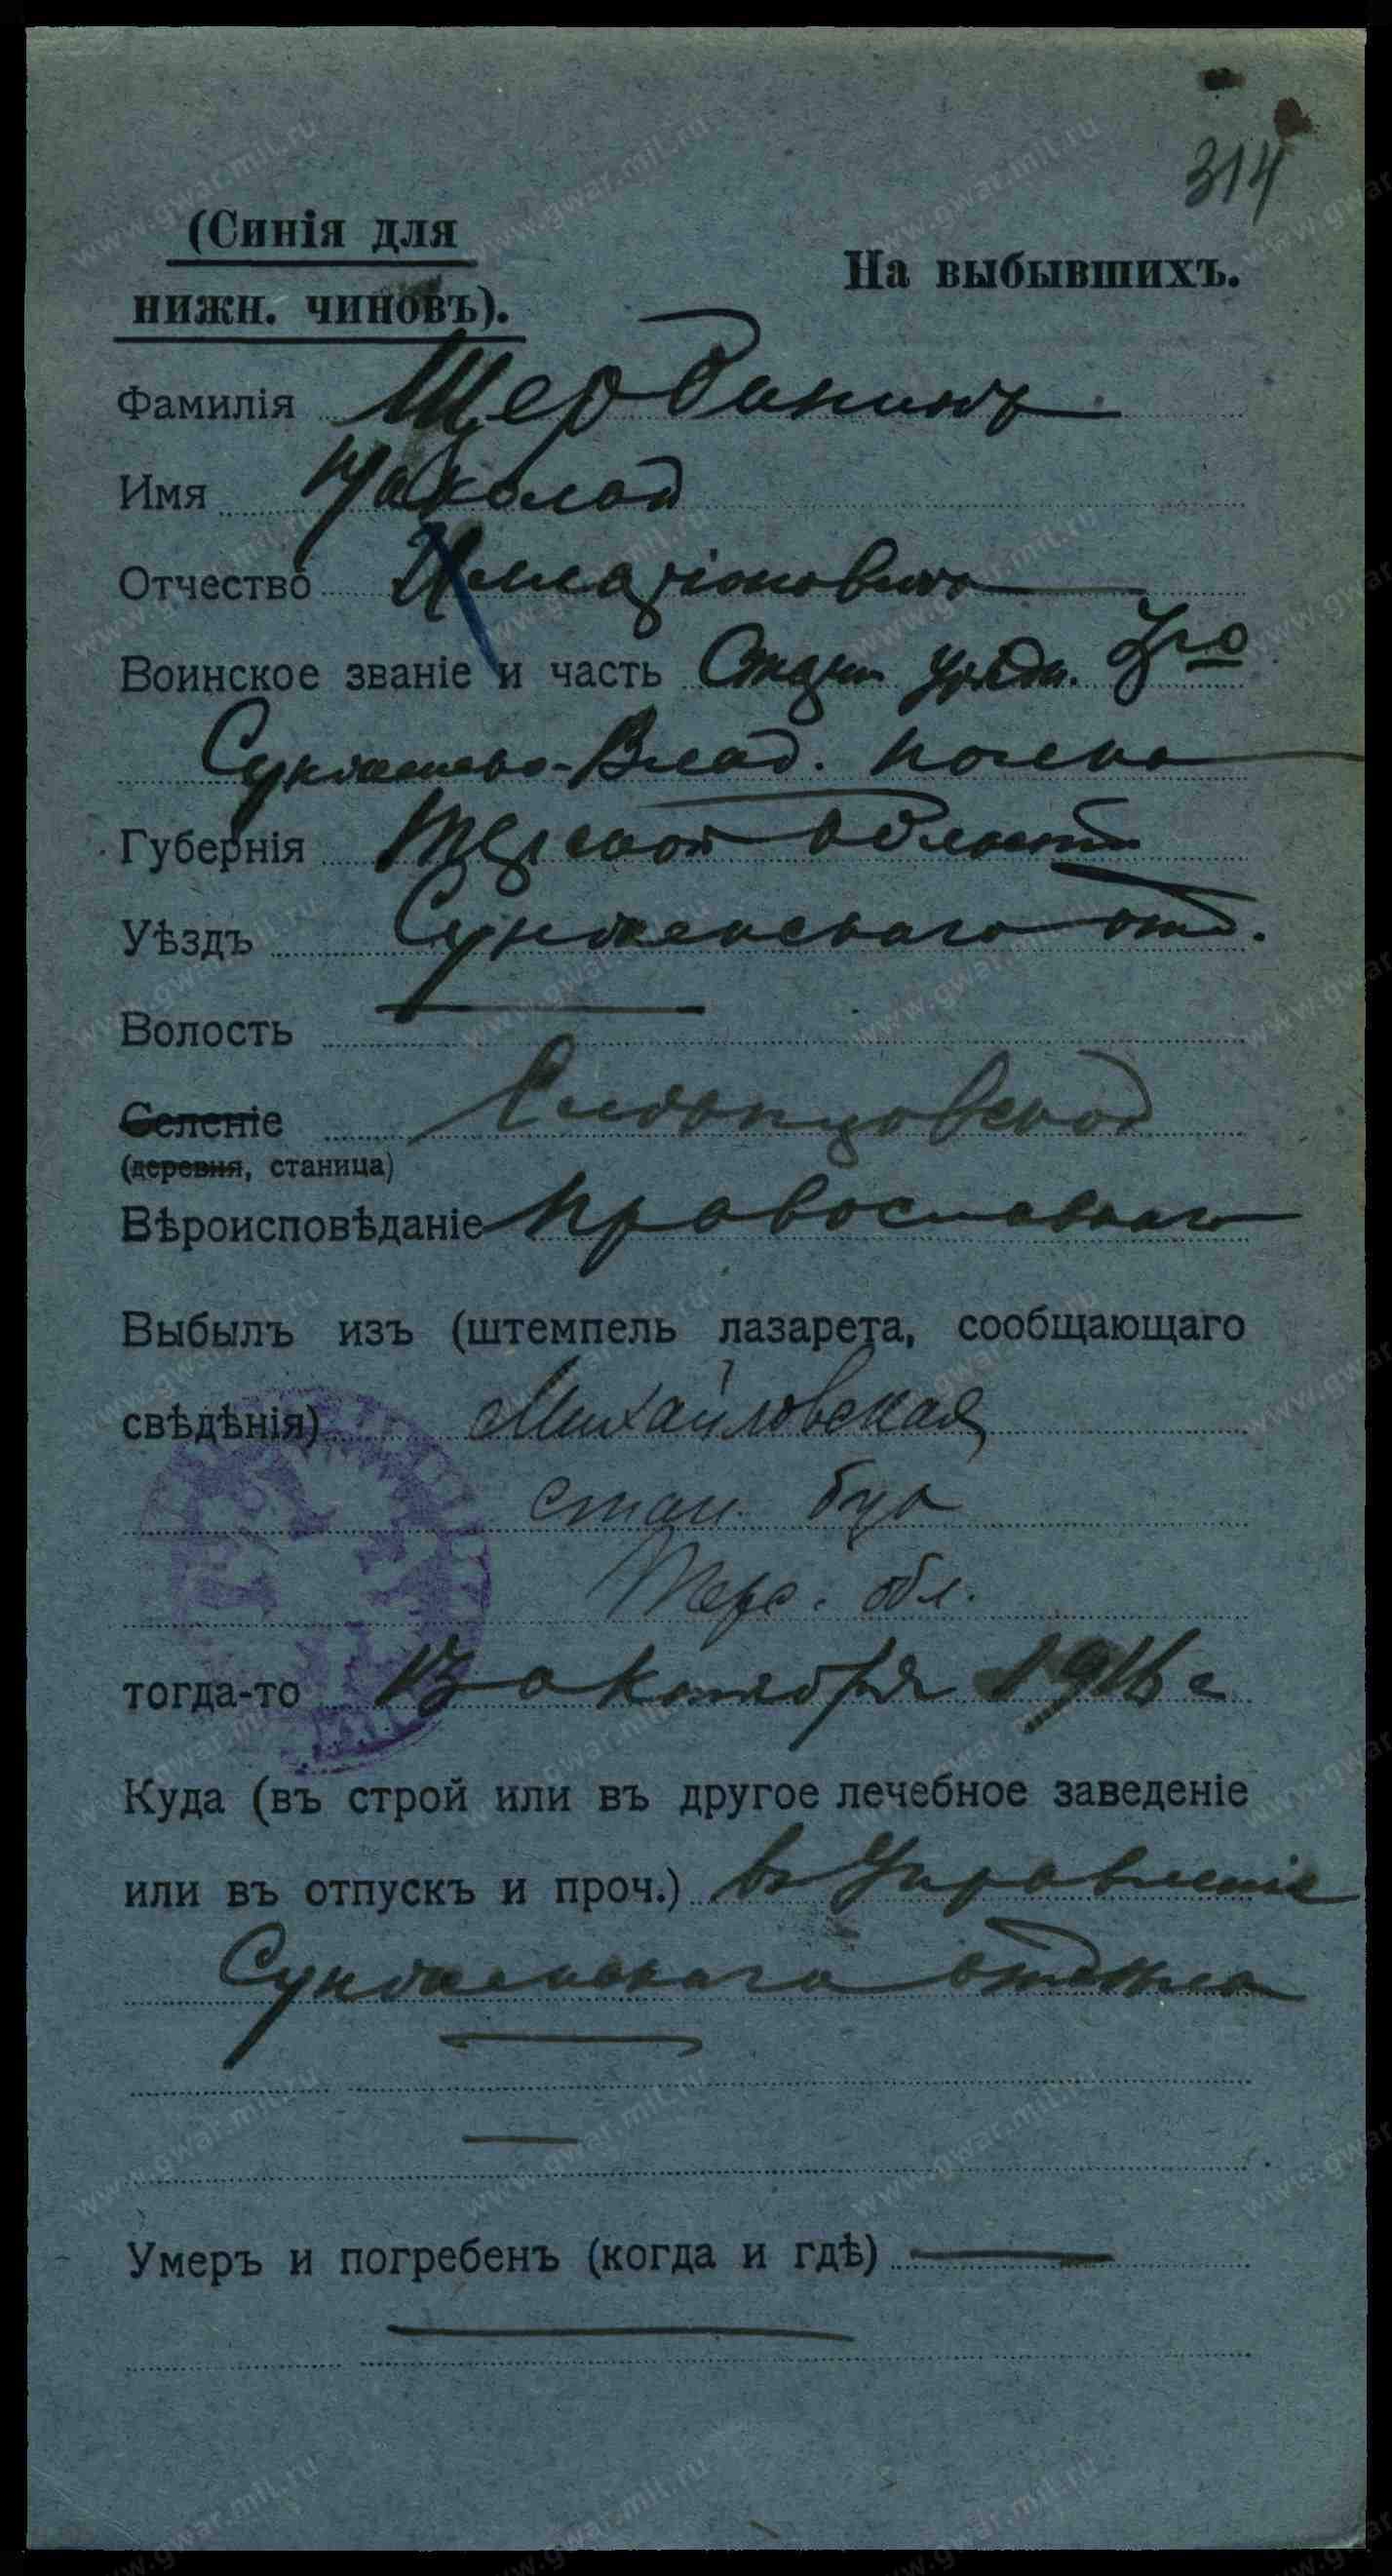 314
(Синія для
нижн. чиновъ).
На выбывшихъ.
Фамилія Щербининъ
Имя
Отчество
Воинское званіе и часть Старш. уряд. 3го
Сунженско-Влад. полка
Губернія Терской области
Уѣздъ Сунженскаго отд.
Волость
Селеніе
(деревня, станица)
Вѣроисповѣданіе Православнаго
Выбылъ изъ (штемпель лазарета, сообщающаго
свѣдѣнія) Михайловская
стан.
Терс. обл.
тогда-то 13 октября 1916 г
Куда (въ строй или въ другое лечебное заведеніе
или въ отпускъ и проч.) въ Управленіе
Сунженскаго отдѣла
Умеръ и погребенъ (когда и гдѣ)
www.gwar.mil.ru